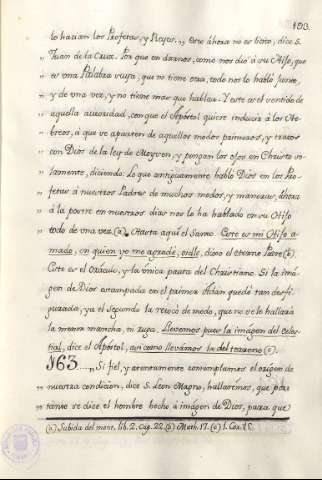 103.
lo hacian los Profetas, y Reyes.,, Que áhora no es licito, dice S.
,, Juan de la Cruz. Por que en darnos, como nos dió á su Hijo, que
,, es una Palabra suya, que no tiene otra, todo nos lo habló junto,
,, y de una vez, y no tiene mas que hablar. Y este es el sentido de
,, aquella autoridad, con que el Apóstol quiere inducir á los He-
,, breos, á que se aparten de aquellos modos primeros, y tratos
,, con Dios de la ley de Moysen, y pongan los ojos en Christo so-
,, lamente, diciendo: Lo que antiguamente habló Dios en los Pro-
,, fetas á nuestros Padres de muchos modos, y maneras, áhora
,, á la postre en nuestros dias nos lo ha hablado en su Hijo
,, todo de una vez. (a) Hasta aquí el Santo. Este es mi Hijo a-
mado, en quien yo me agradé, oidle, dixo el eterno Padre (b).
Este es el Oráculo, y la única pauta del Christiano. Si la imá-
gen de Dios estampada en el primer Adán quedó tan desfi-
gurada, ya el Segundo la retocó de modo, que no se le hallará
la menor mancha, ni ruga. Llevemos pues la imágen del celes-
tial, dice el Apóstol, asi como llevámos la del terreno (c).
N63.... Si fiel, y atentamente contemplamos el origen de
nuestra condicion, dice S. Leon Magno, hallaremos, que por
tanto se dice el hombre hecho á imágen de Dios, para que
(a) Subida del mont. lib. 2. cap. 22. (b) Math. 17. (c) 1. Cor. 15.